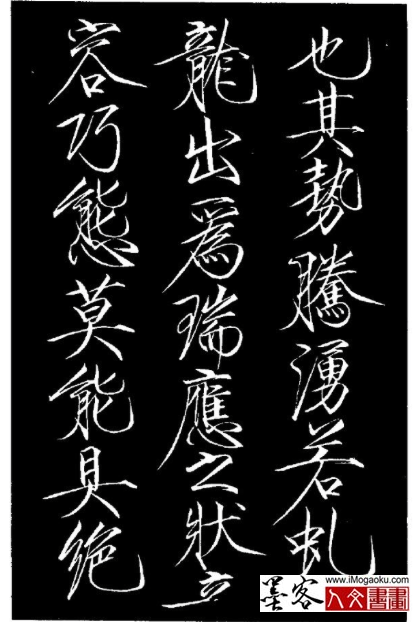 也其勢騰湧若虬
龍出爲瑞應之狀
容巧態莫能具絶
墨客
www.iMogaoku.com
人文書畫